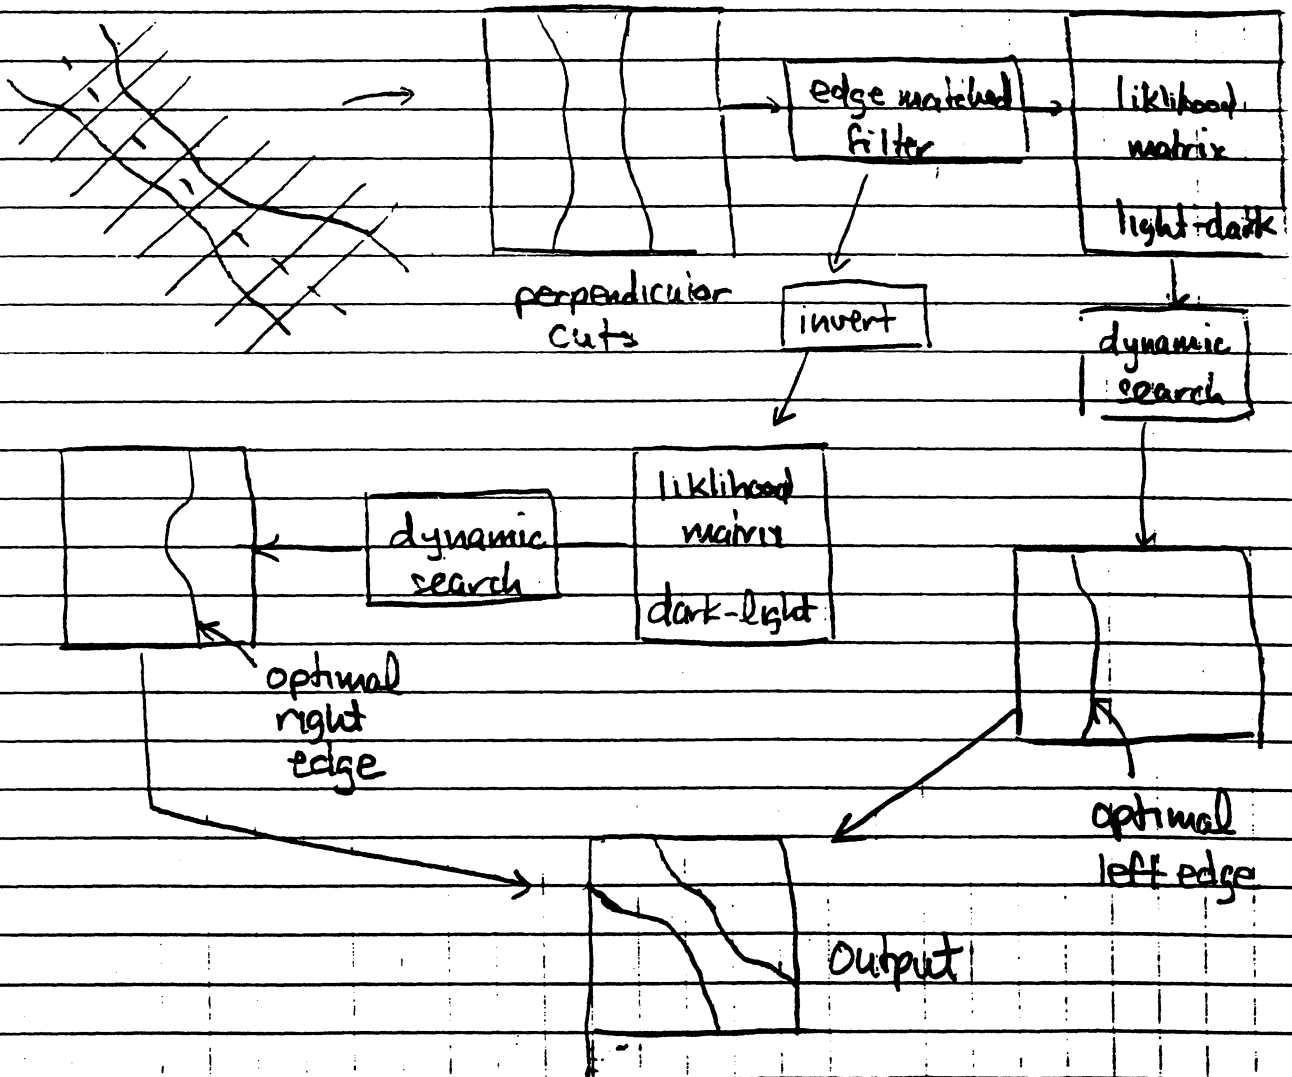 edge matched
filter
liklihood
matrix
light-dark
perpendicular
cuts
invert
dynamic
search
liklihood
matrix
dark-light
dynamic
search
optimal
right
edge
optimal
left edge
output